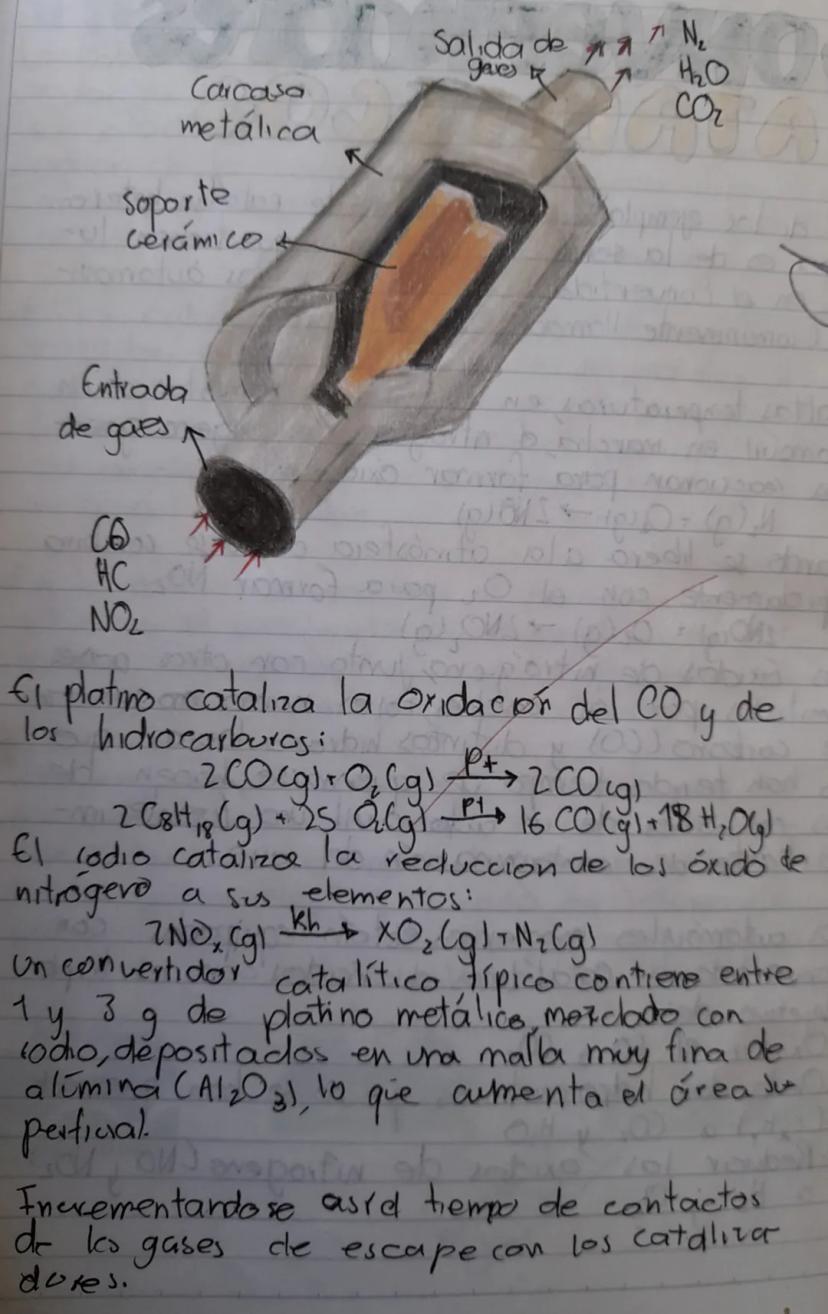 Salida de
gaes
N₂
H₂O
CO₂
Carcasa
metálica
soporte
cerámico
Entrada
de gaes
CO
HC
NO₂
El platino cataliza la oxidación del CO y de
los hidrocarburos:
2CO(g)+O₂(g) Pt→ 2CO(g)
2C8H₁₈(g) + 25 O₂(g) Pt→ 16 CO(g)+18H₂O(g)
El rodio cataliza la reduccion de los óxido de
nitrógeno a sus elementos:
2NOₓ(g) Rh→ XO₂(g)+N₂(g)
Un convertidor catalítico típico contiene entre
1 y 3 g de platino metálico, mezclado con
rodio, depositados en una malla muy fina de
alúmina (Al₂O₃), lo que aumenta el área su
perficial.
Incrementandose asi el tiempo de contactos
de los gases de escape con los cataliza
dores.